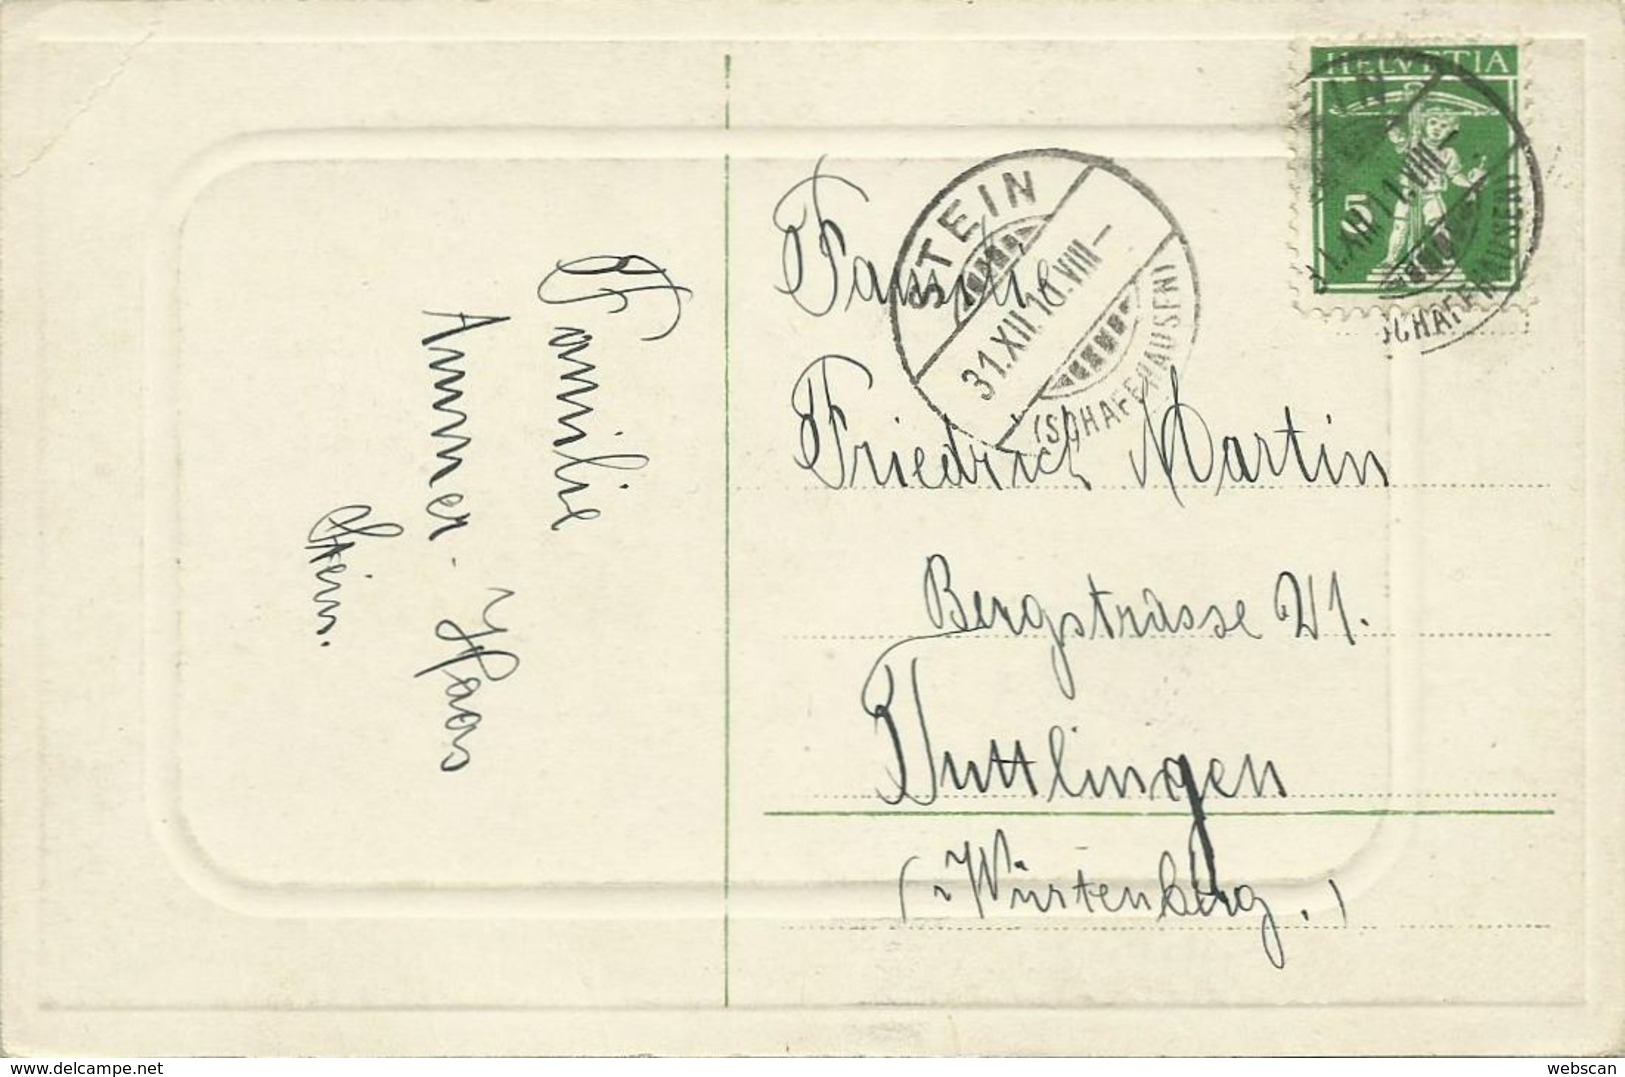 Familie
Ammer-Haas
Stein.
HELVETIA
5
STEIN
31.XII.10.VIII–
(SCHAFFHAUSEN)
Familie
Friedrich Martin
Bergstrasse 21.
Tuttlingen
(Würtenberg.)
www.delcampe.net
webscan